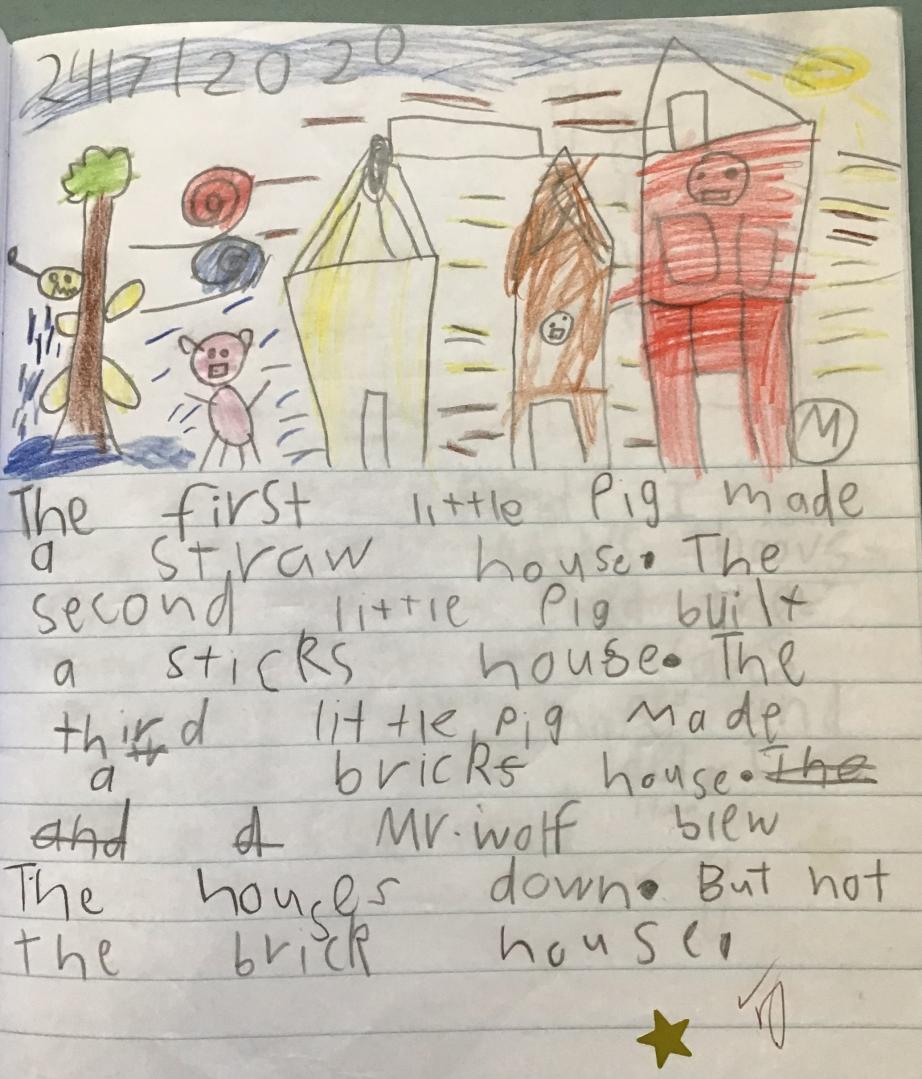 24/7/2020
M
The first little Pig made
a straw house. The
second little Pig built
a sticks house. The
third little pig Made
a bricks house. The
and a Mr. wolf blew
The houses down. But not
the brick house.